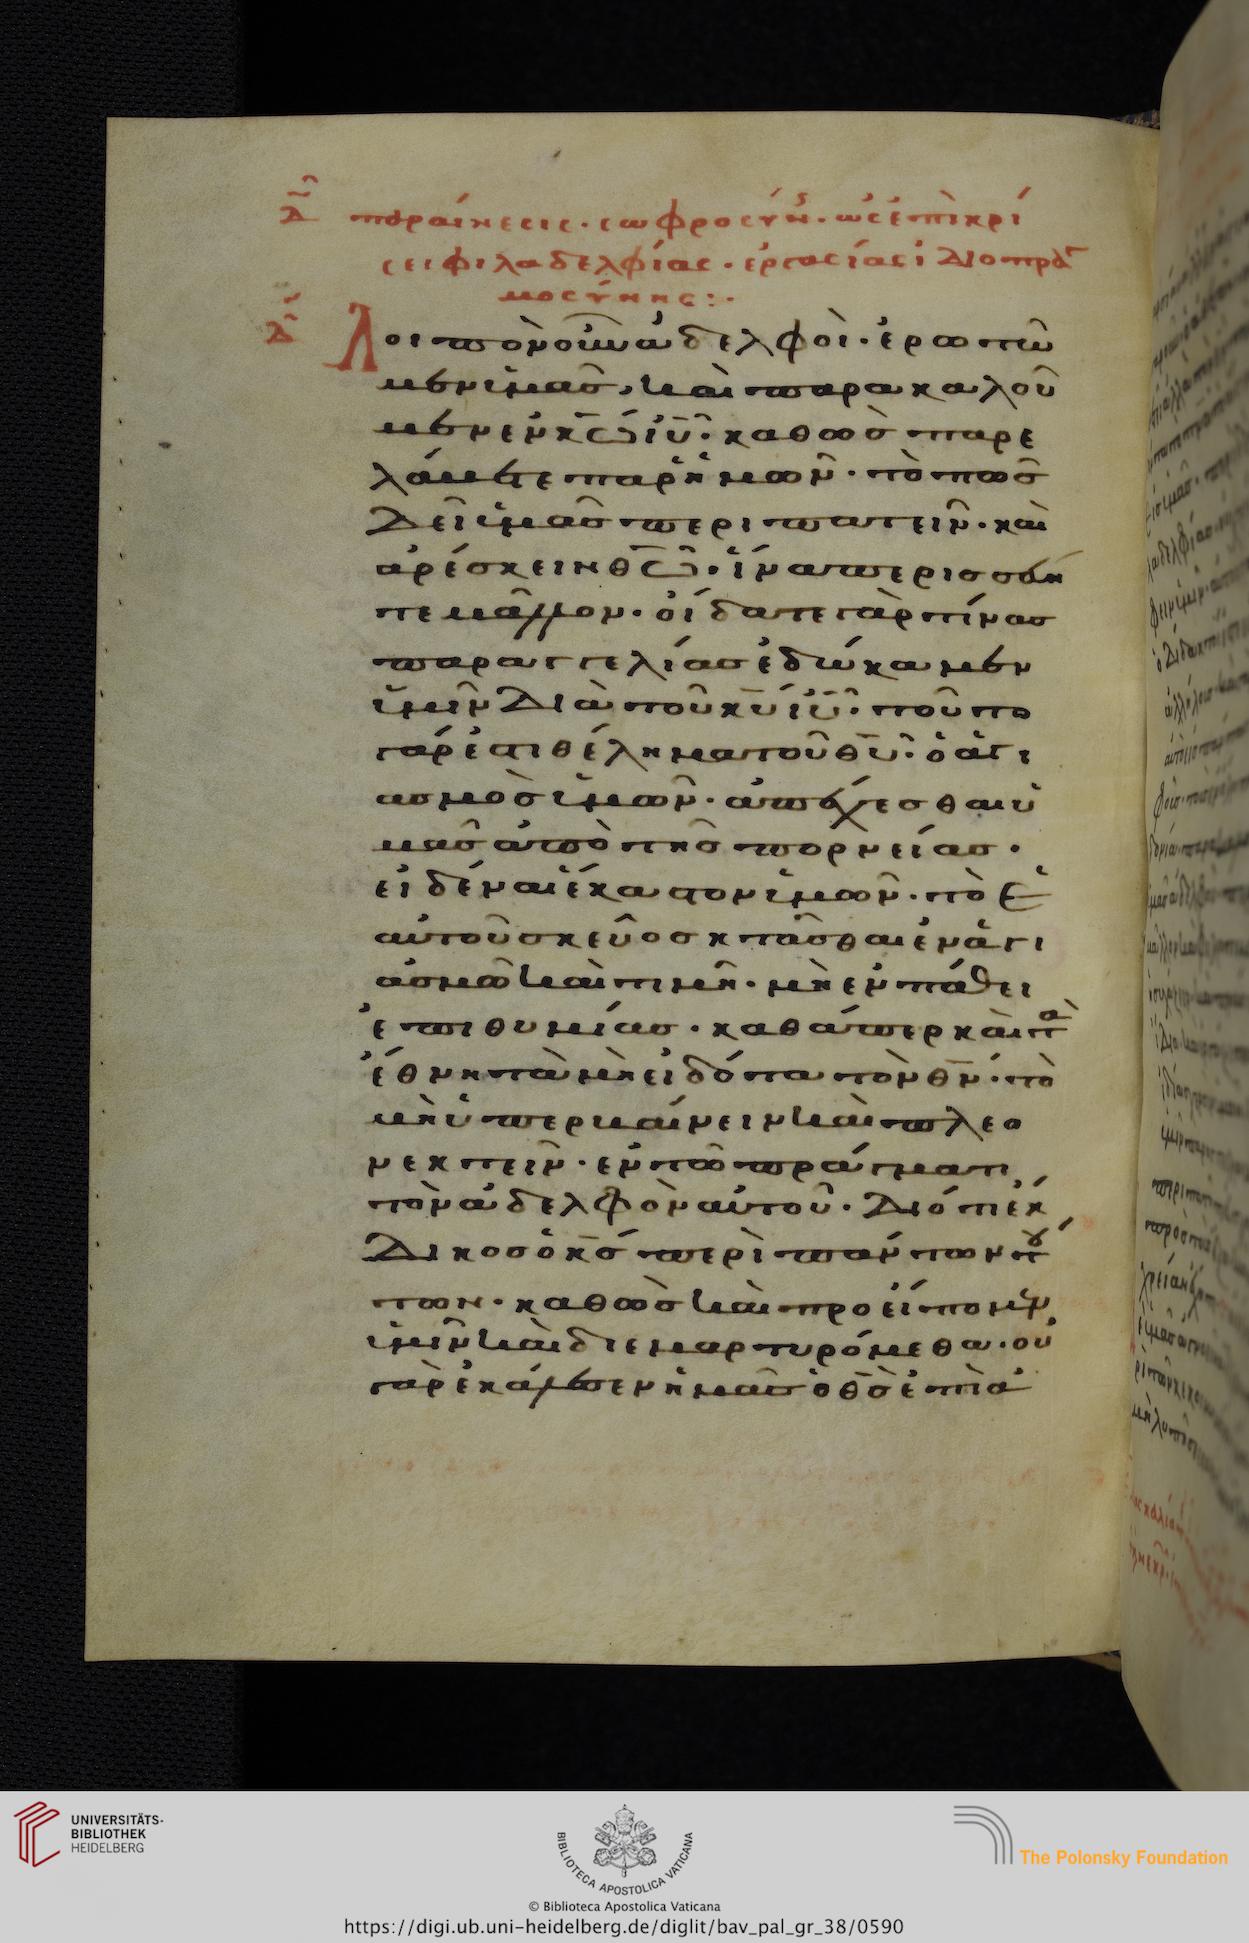 Δ παραίνεσις· σωφροσύνης· ὡς ἐπὶ κρί
σει φιλαδελφίας· ἐργασίας ἰδιοπραγ
μοσύνης:·
Λοιπὸν οὖν ἀδελφοὶ· ἐρωτῶ
μεν ὑμᾶς, καὶ παρακαλοῦ
μεν ἐν κ̅ω̅ ι̅υ̅· καθὼς παρε
λάβετε παρ' ἡμῶν· τὸ πῶς
δεῖ ὑμᾶς περιπατεῖν· καὶ
ἀρέσκειν θ̅ω̅· ἵνα περισσεύη
τε μᾶλλον· οἴδατε γὰρ τίνας
παραγγελίας ἐδώκαμεν
ὑμῖν διὰ τοῦ κ̅υ̅ ι̅υ̅· τοῦτο
γάρ ἐστι θέλημα τοῦ θ̅υ̅· ὁ ἁγι
ασμὸς ὑμῶν· ἀπέχεσθαι ὑ
μᾶς ἀπὸ τῆς πορνείας·
εἰδέναι ἕκαστον ὑμῶν· τὸ ἑ
αυτοῦ σκεῦος κτᾶσθαι ἐν ἁγι
ασμῶ καὶ τιμῆ· μὴ ἐν πάθει
ἐπιθυμίας· καθάπερ καὶ τὰ
ἔθνη τὰ μὴ εἰδότα τὸν θ̅ν̅· τὸ
μὴ ὑπερβαίνειν καὶ πλεο
νεκτεῖν· ἐν τῶ πράγματι
τὸν ἀδελφὸν αὐτοῦ· διότι ἔκ
δικος ὁ κ̅ς̅ περὶ πάντων τού
των· καθὼς καὶ προείπομεν
ὑμῖν καὶ διεμαρτυρόμεθα· οὐ
γὰρ ἐκάλεσεν ἡμᾶς ὁ θ̅ς̅ ἐπὶ ἀ
UNIVERSITÄTS-
BIBLIOTHEK
HEIDELBERG
BIBLIOTECA APOSTOLICA VATICANA
The Polonsky Foundation
© Biblioteca Apostolica Vaticana
https://digi.ub.uni-heidelberg.de/diglit/bav_pal_gr_38/0590